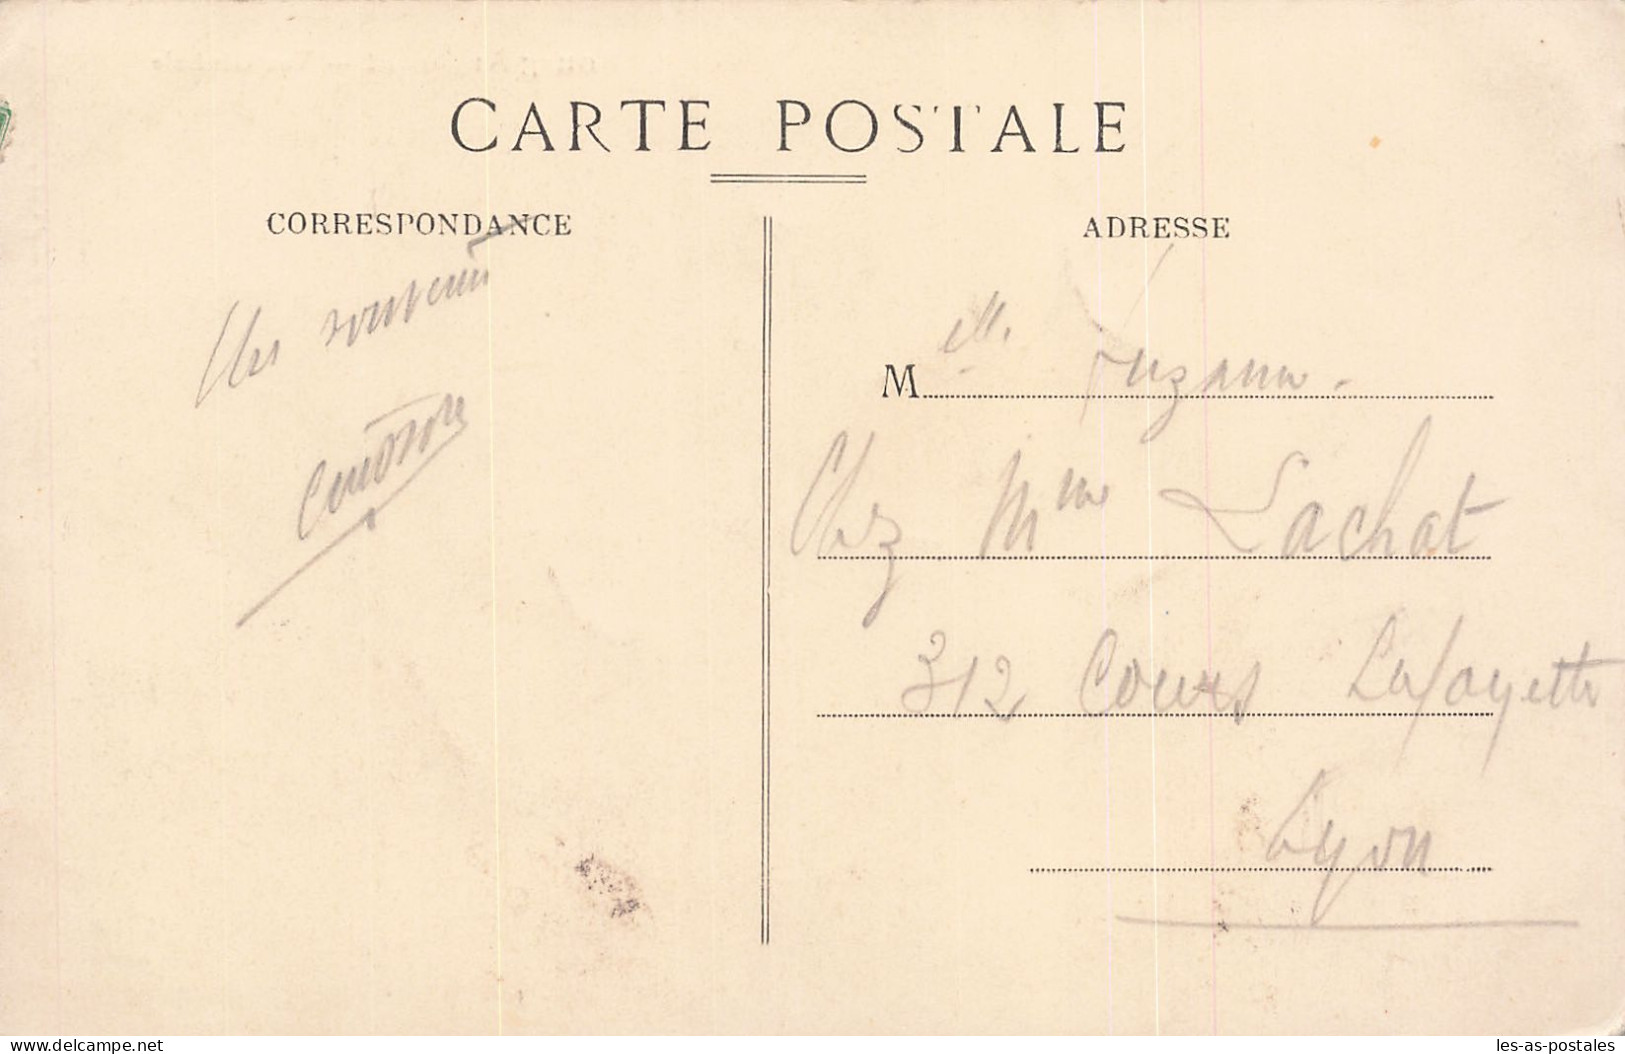 CARTE POSTALE
CORRESPONDANCE
ADRESSE
Un souvenir
Melle Suzanne.
Chez Mme Lachat
312 Cours Lafayette
Lyon
www.delcampe.net
les-as-postales